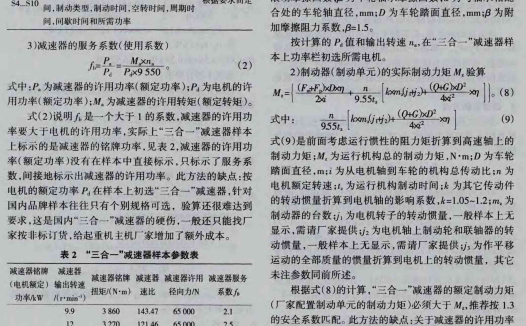 S4...S10
间,制动类型,制动时间,空转时间,周期时
间,间歇时间和所需功率
3)减速器的服务系数(使用系数)
(2)
式中:Pₐ为减速器的许用功率(额定功率);P₄为电机的许
用功率(额定功率);Mₐ为减速器的许用转矩(额定转矩)。
式(2)说明fb是一个大于1的系数,减速器的许用功
率要大于电机的许用功率,实际上“三合一”减速器样本
上标示的是减速器的铭牌功率,见表2,减速器的许用功
率(额定功率)没有在样本中直接标示,只标示了服务系
数,间接地标示出减速器的许用功率。此方法的缺点:按
电机的额定功率P₄在样本上初选“三合一”减速器,针对
国内品牌样本往往只有个别规格可选,验算还很难达到
要求,这是国内“三合一”减速器的硬伤,一般还只能找厂
家按非标订货,给起重机主机厂家增加了额外成本。
表2 “三合一”减速器样本参数表
减速器铭牌
(电机额定)
功率/kW
减速器
输出转速
/(r·min⁻¹)
减速器铭牌
扭矩/(N·m)
减速器
速比
减速器许用
径向力/N
减速器服务
系数fb
9.9 3 860 143.47 65 000 2.1
12 3 270 121.46 65 000 2.5
合处的车轮轴直径,mm;D为车轮踏面直径,mm;β为附
加摩擦阻力系数,β=1.5。
按计算的P值和输出转速n,在“三合一”减速器样
本上功率栏初选所需电机。
2)制动器(制动单元)的实际制动力矩M验算
(8)
式中:
(9)
式(9)是前面考虑运行惯性的阻力矩折算到高速轴上的
制动力矩;M为运行机构总的制动力矩,N·m;D为车轮
踏面直径,m;i为从电机轴到车轮的机构总传动比;n为
电机额定转速;t为运行机构制动时间;k为其它传动件
的转动惯量折算到电机轴的影响系数,k=1.05~1.2;m为
制动器的台数;j₁为电机转子的转动惯量,一般样本上无
显示,需请厂家提供;j₂为电机轴上制动轮和联轴器的转
动惯量,一般样本上无显示,需请厂家提供;j₃为作平移
运动的全部质量的惯量折算到电机上的转动惯量,其它
未注参数同前所述。
根据式(8)的计算,“三合一”减速器的额定制动力矩
(厂家配置制动单元的制动力矩)必须大于M,推荐按1.3
的安全系数匹配。此方法的缺点:关于减速器的许用功率